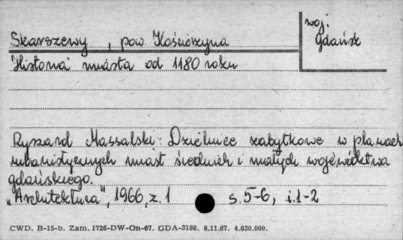 woj.
Skarszewy , pow. Kościerzyna
Gdańsk
Historia miasta od 1180 roku
Ryszard Massalski: Dzielnice zabytkowe w planach
urbanistycznych miast średnich i małych województwa
gdańskiego.
"Architektura", 1966, z. 1 s. 5-6, i. 1-2
CWD. B-15-b. Zam. 1726-DW-On-67. GDA-3198. 8.11.67. 4.630.000.